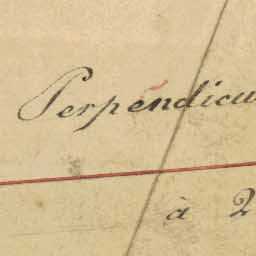 Perpendicu
à 2